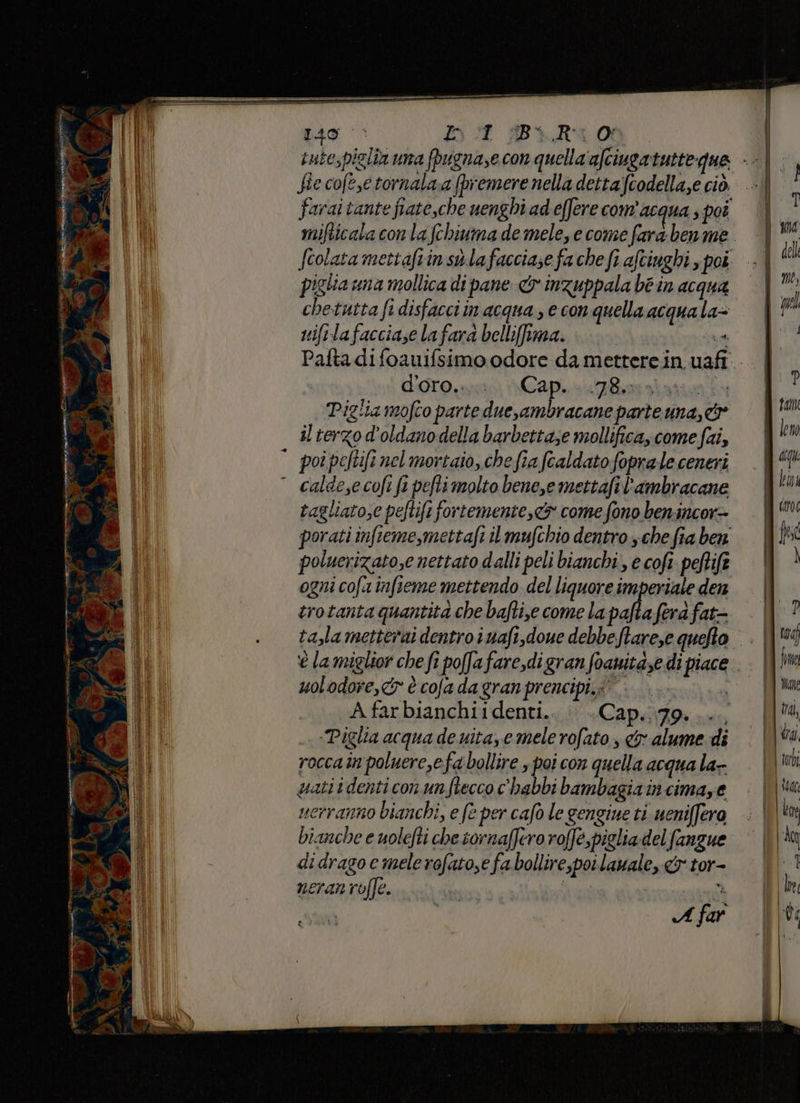 140 L I B R O
tute,piglia una ſpugna,e con quella aſciuga tutte que
ſte coſe,e tornala a ſpremere nella detta ſcodella,e ciò
farai tante fiate,che uenghi ad eſſere com'acqua , poi
miſticala con la ſchiuma de mele, e come ſara ben me
ſcolata mettaſi in sù la faccia,e fa che ſi aſciughi , poi
piglia una mollica di pane & inzuppala bē in acqua
che tutta ſi disfacci in acqua , e con quella acqua la-
uiſi la faccia,e la farà belliſſima.
Paſta di ſoauiſsimo odore da mettere in uaſi
d'oro. Cap. 78.
Piglia moſco parte due,ambracane parte una,&
il terzo d'oldano della barbetta,e mollifica, come ſai,
poi peſtiſi nel mortaio, che ſia ſcaldato ſopra le ceneri
calde,e coſi ſi peſti molto bene,e mettaſi l'ambracane
tagliato,e peſtiſi fortemente,& come ſono ben incor-
porati inſieme,mettaſi il muſchio dentro , che ſia ben
poluerizato,e nettato dalli peli bianchi , e coſi peſtiſi
ogni coſa inſieme mettendo del liquore imperiale den
tro tanta quantità che baſti,e come la paſta ſerà fat-
ta,la metterai dentro i uaſi,doue debbe ſtare,e queſto
è la miglior che ſi poſſa fare,di gran ſoauità,e di piace
uol odore,& è coſa da gran prencipi.
A far bianchi i denti. Cap. 79.
Piglia acqua de uita, e mele roſato , & alume di
rocca in poluere,e fa bollire , poi con quella acqua la-
uati i denti con un ſtecco c'habbi bambagia in cima, e
uerranno bianchi, e ſe per caſo le gengiue ti ueniſſero
bianche e uoleſti che tornaſſero roſſe,piglia del ſangue
di drago e mele roſato,e fa bollire,poi lauale, & tor-
neran roſſe.
A far